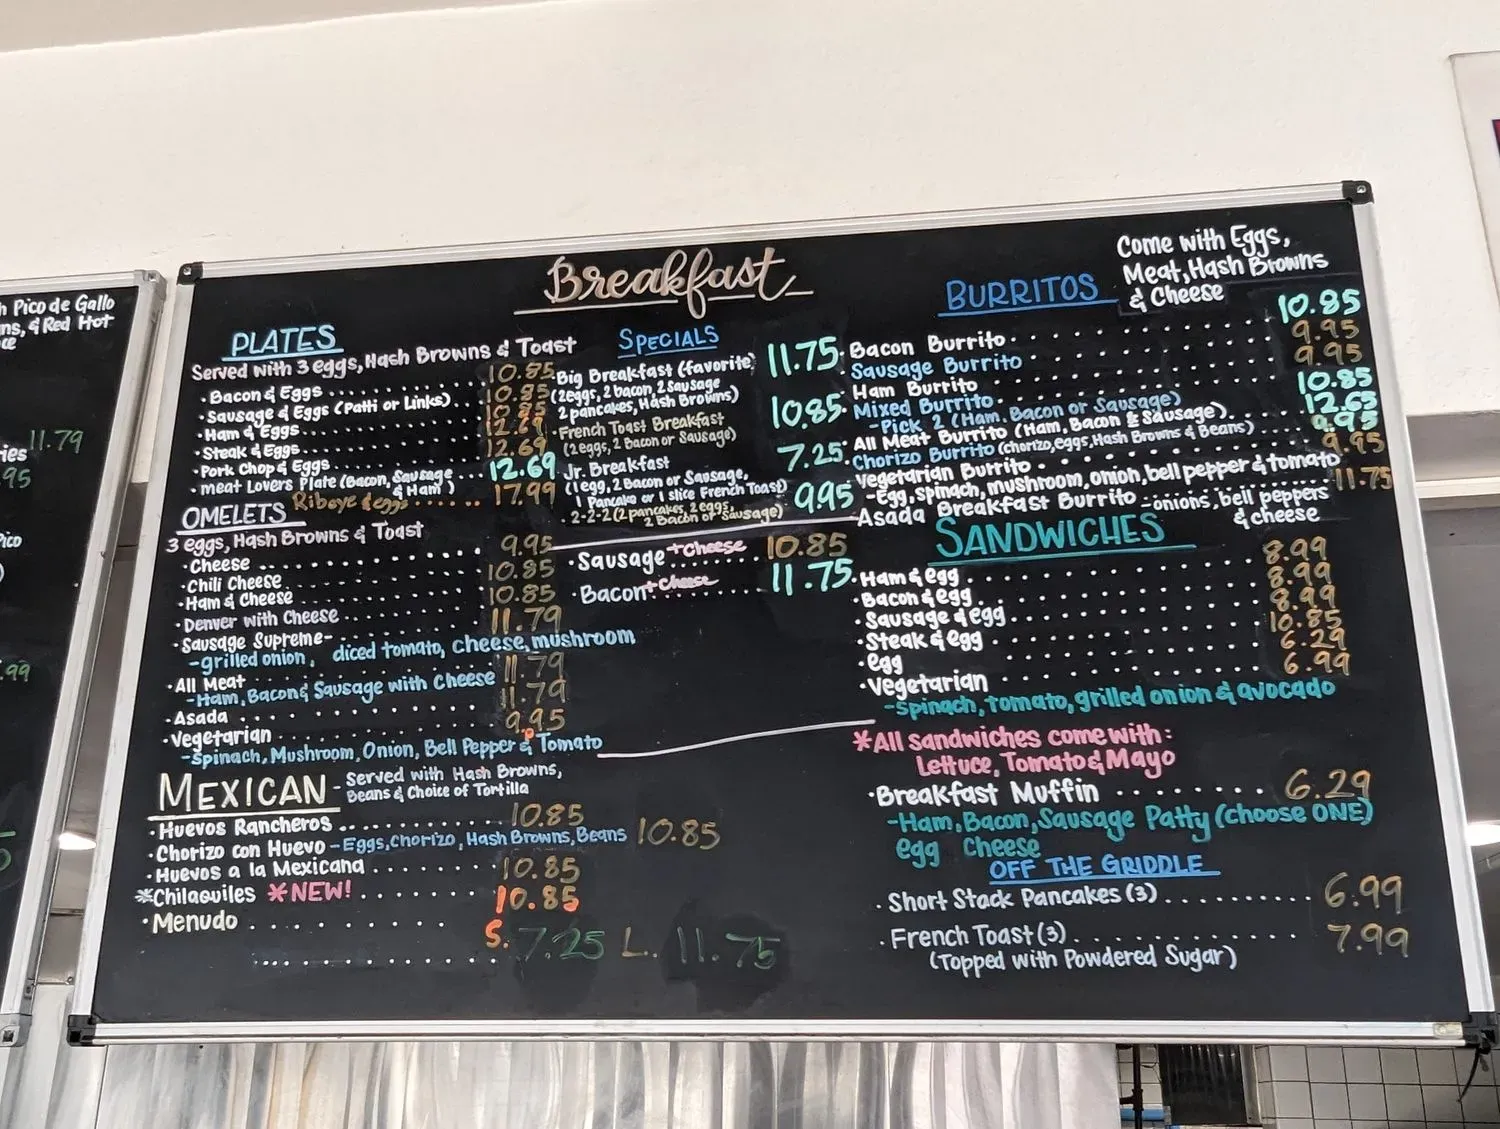 h Pico de Gallo
ns, & Red Hot
ries 11.79
.95
Pico
.99
Breakfast
PLATES
Served with 3 eggs, Hash Browns & Toast
· Bacon & Eggs ........ 10.85
· Sausage & Eggs (Patti or Links) . 10.85
· Ham & Eggs ........ 10.85
· Steak & Eggs ........ 12.69
· Pork Chop & Eggs ........ 12.69
· meat Lovers Plate (Bacon, Sausage & Ham) ... 12.69
Ribeye & eggs ...... 17.99
OMELETS
3 eggs, Hash Browns & Toast
· Cheese ........ 9.95
· Chili Cheese ........ 10.85
· Ham & Cheese ........ 10.85
· Denver with Cheese ........ 11.79
· Sausage Supreme-
-grilled onion, diced tomato, cheese, mushroom
· All Meat ........ 11.79
-Ham, Bacon & Sausage with Cheese
· Asada ........ 11.79
· Vegetarian ........ 9.95
-Spinach, Mushroom, Onion, Bell Pepper & Tomato
MEXICAN - Served with Hash Browns,
Beans & Choice of Tortilla
· Huevos Rancheros ........ 10.85
· Chorizo con Huevo - Eggs, Chorizo, Hash Browns, Beans 10.85
· Huevos a la Mexicana ....... 10.85
*Chilaquiles *NEW! ........ 10.85
· Menudo ........
S. 7.25 L. 11.75
SPECIALS
· Big Breakfast (favorite) 11.75
(2 eggs, 2 bacon, 2 Sausage
2 pancakes, Hash Browns)
· French Toast Breakfast 10.85
(2 eggs, 2 bacon or Sausage)
Jr. Breakfast 7.25
(1 egg, 2 Bacon or Sausage,
1 Pancake or 1 slice French Toast)
· 2-2-2 (2 pancakes, 2 eggs, 9.95
2 Bacon or Sausage)
· Sausage + Cheese 10.85
· Bacon + Cheese 11.75
BURRITOS
Come with Eggs,
Meat, Hash Browns
& Cheese
· Bacon Burrito ........ 10.85
Sausage Burrito ........ 9.95
Ham Burrito ........ 9.95
· Mixed Burrito ........ 10.85
-Pick 2 (Ham, Bacon or Sausage)
· All Meat Burrito (Ham, Bacon & Sausage) . 12.65
· Chorizo Burrito (chorizo, eggs, Hash Browns & Beans) . 9.95
Vegetarian Burrito ........ 9.95
-Egg, spinach, mushroom, onion, bell pepper & tomato
Asada Breakfast Burrito -onions, bell peppers 11.75
& cheese
SANDWICHES
· Ham & egg ........ 8.99
· Bacon & egg ........ 8.99
· Sausage & egg ........ 8.99
· Steak & egg ........ 10.85
· egg ........ 6.29
· Vegetarian ........ 6.99
-spinach, tomato, grilled onion & avocado
*All sandwiches come with:
Lettuce, Tomato & Mayo
· Breakfast Muffin ........ 6.29
-Ham, Bacon, Sausage Patty (choose ONE)
egg cheese
OFF THE GRIDDLE
· Short Stack Pancakes (3) .......... 6.99
· French Toast (3) ............ 7.99
(Topped with Powdered Sugar)